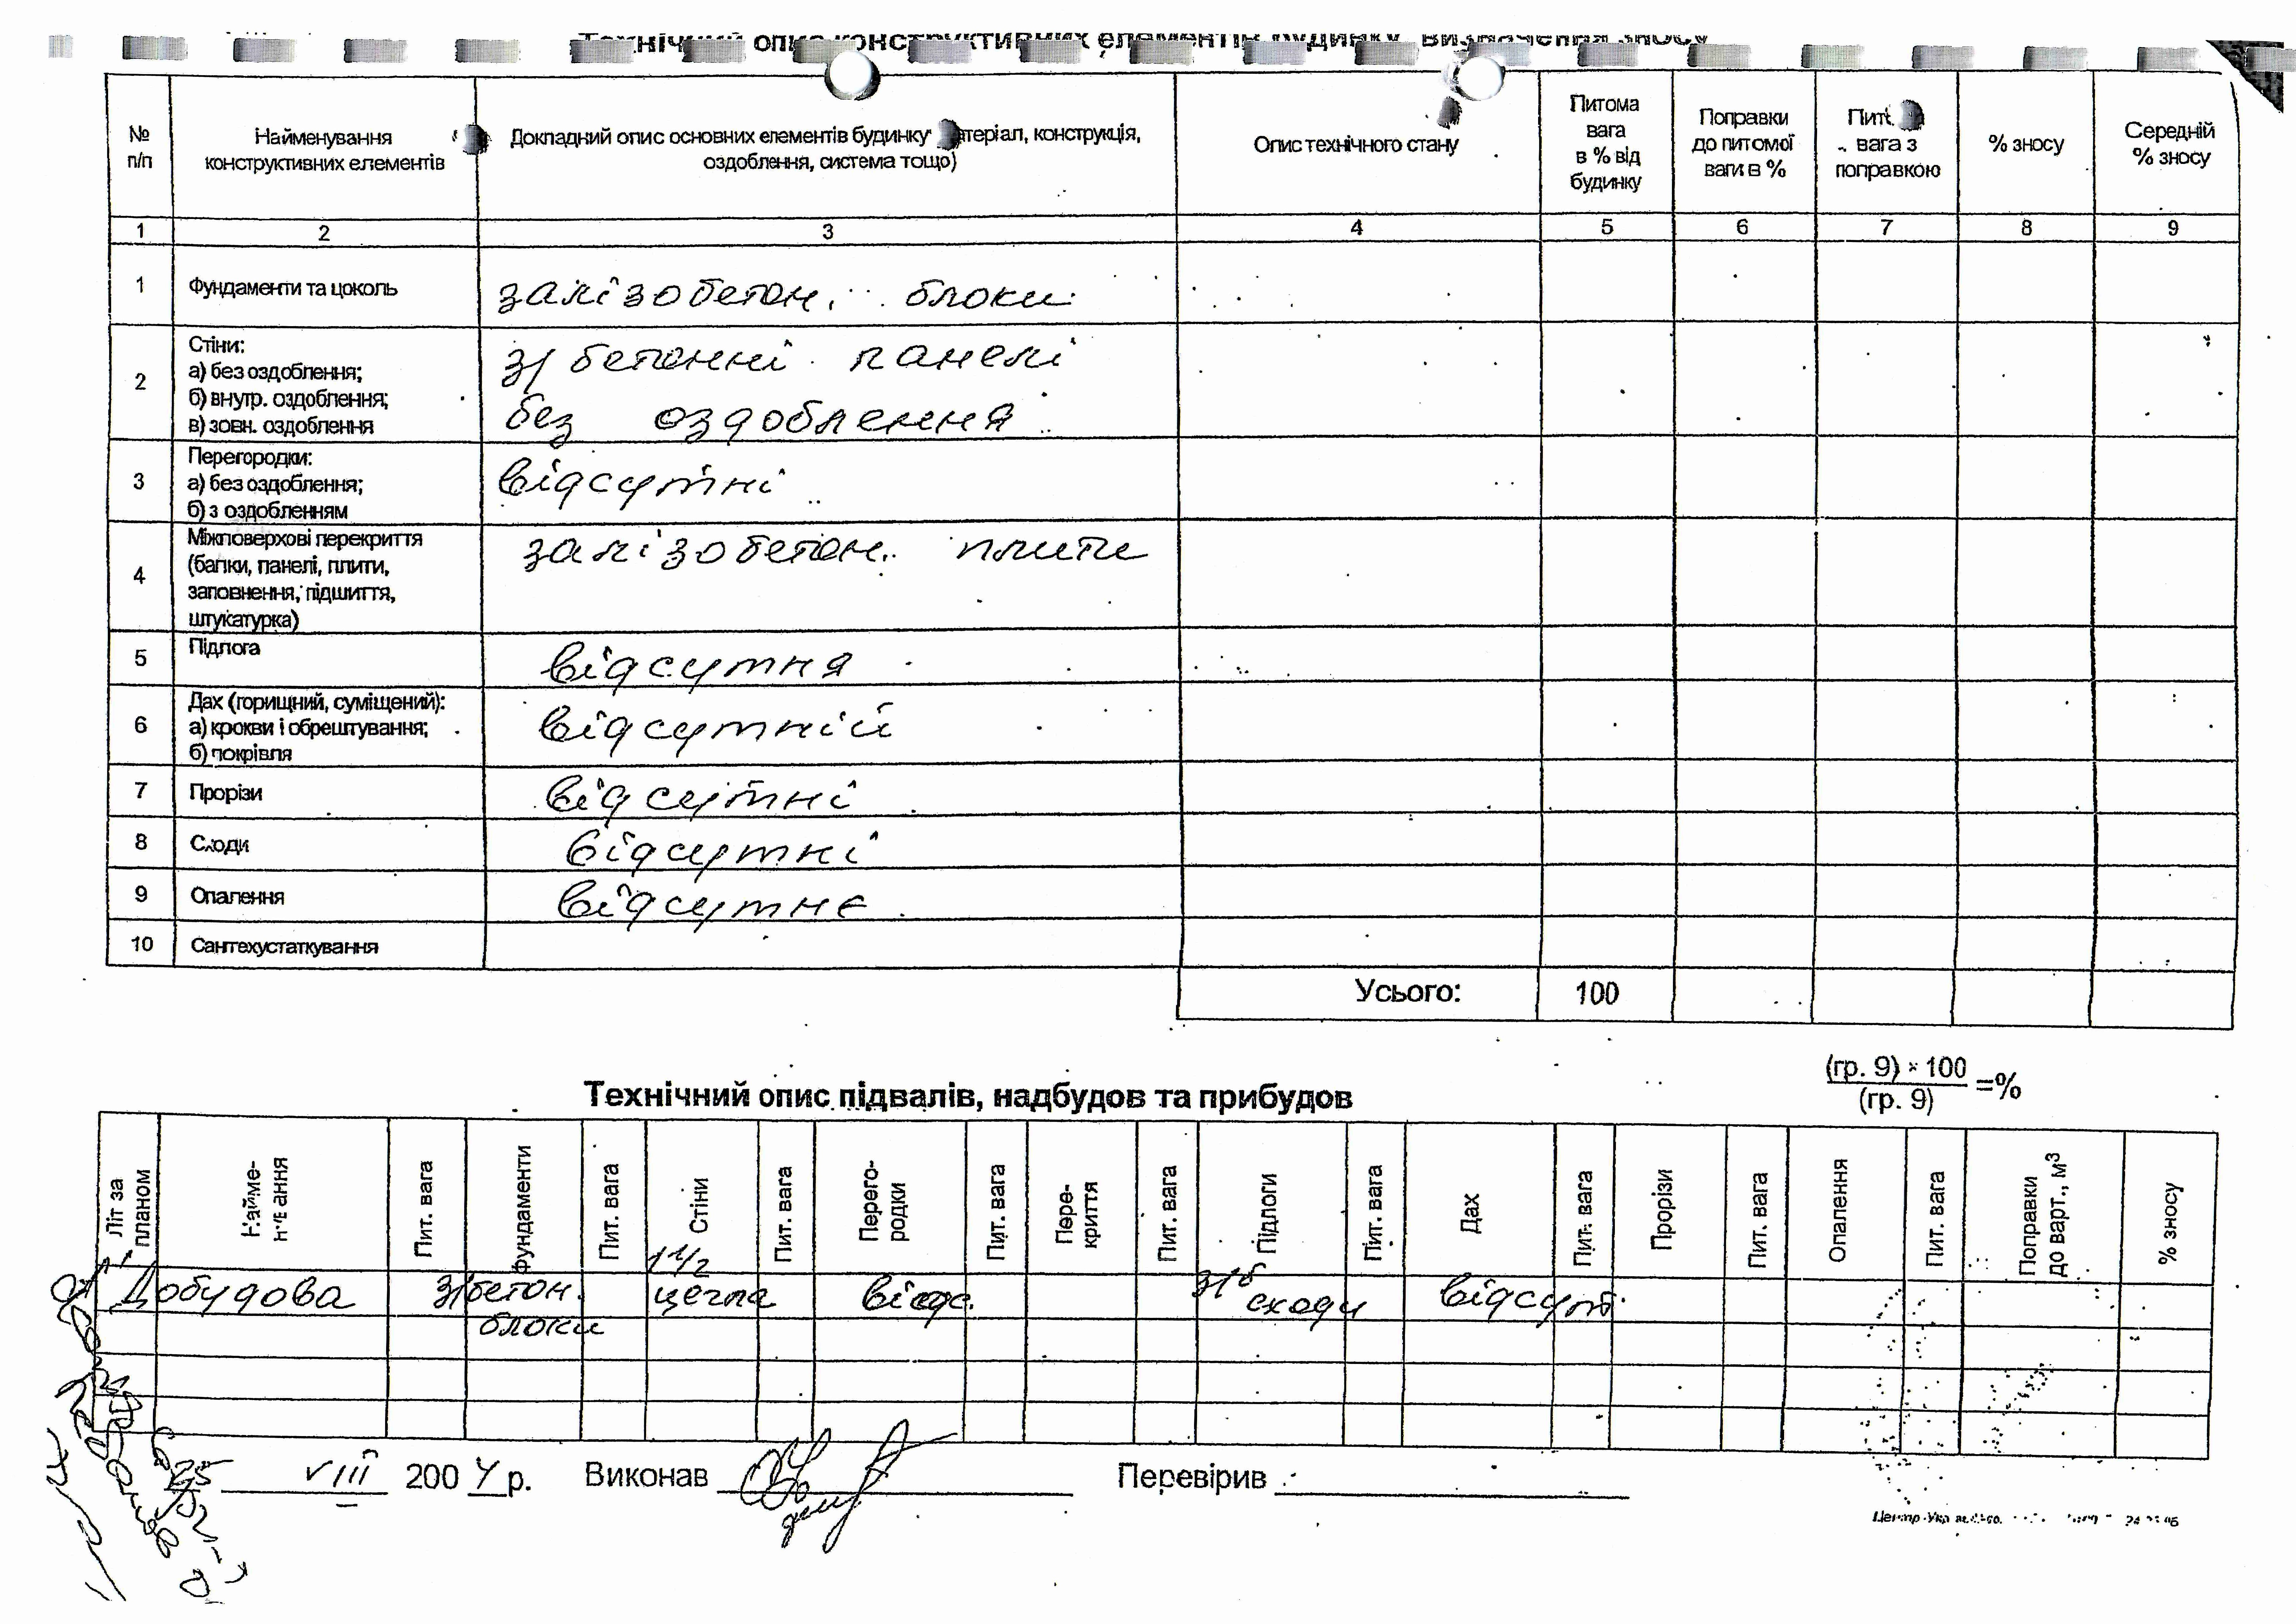 Технічний опис конструктивних елементів будинку, визначення зносу
№ п/п
Найменування конструктивних елементів
Докладний опис основних елементів будинку атеріал, конструкція, оздоблення, система тощо)
Опис технічного стану
Питома вага в % від будинку
Поправки до питомої ваги в %
Пит. вага з поправкою
% зносу
Середній % зносу
1 2 3 4 5 6 7 8 9
1 Фундаменти та цоколь залізобетон. блоки
2 Стіни: з/бетонні панелі
а) без оздоблення;
б) внутр. оздоблення; без оздоблення
в) зовн. оздоблення
3 Перегородки: відсутні
а) без оздоблення;
б) з оздобленням
4 Міжповерхові перекриття залізобетон. плити
(балки, панелі, плити,
заповнення, підшиття,
штукатурка)
5 Підлога відсутня
6 Дах (горищний, суміщений): відсутній
а) крокви і обрештування;
б) покрівля
7 Прорізи відсутні
8 Сходи відсутні
9 Опалення відсутнє
10 Сантехустаткування
Усього: 100
(гр. 9) × 100
=%
(гр. 9)
Технічний опис підвалів, надбудов та прибудов
Літ за планом
Найме- ання
Пит. вага
Фундаменти
Пит. вага
Стіни
Пит. вага
Перего-родки
Пит. вага
Пере-криття
Пит. вага
Підлоги
Пит. вага
Дах
Пит. вага
Прорізи
Пит. вага
Опалення
Пит. вага
Поправки до варт., м³
% зносу
1 1/2
Добудова з/бетон. цегла відс. з/б сходи відсут.
блоки
25 VIII 2004 р. Виконав Перевірив